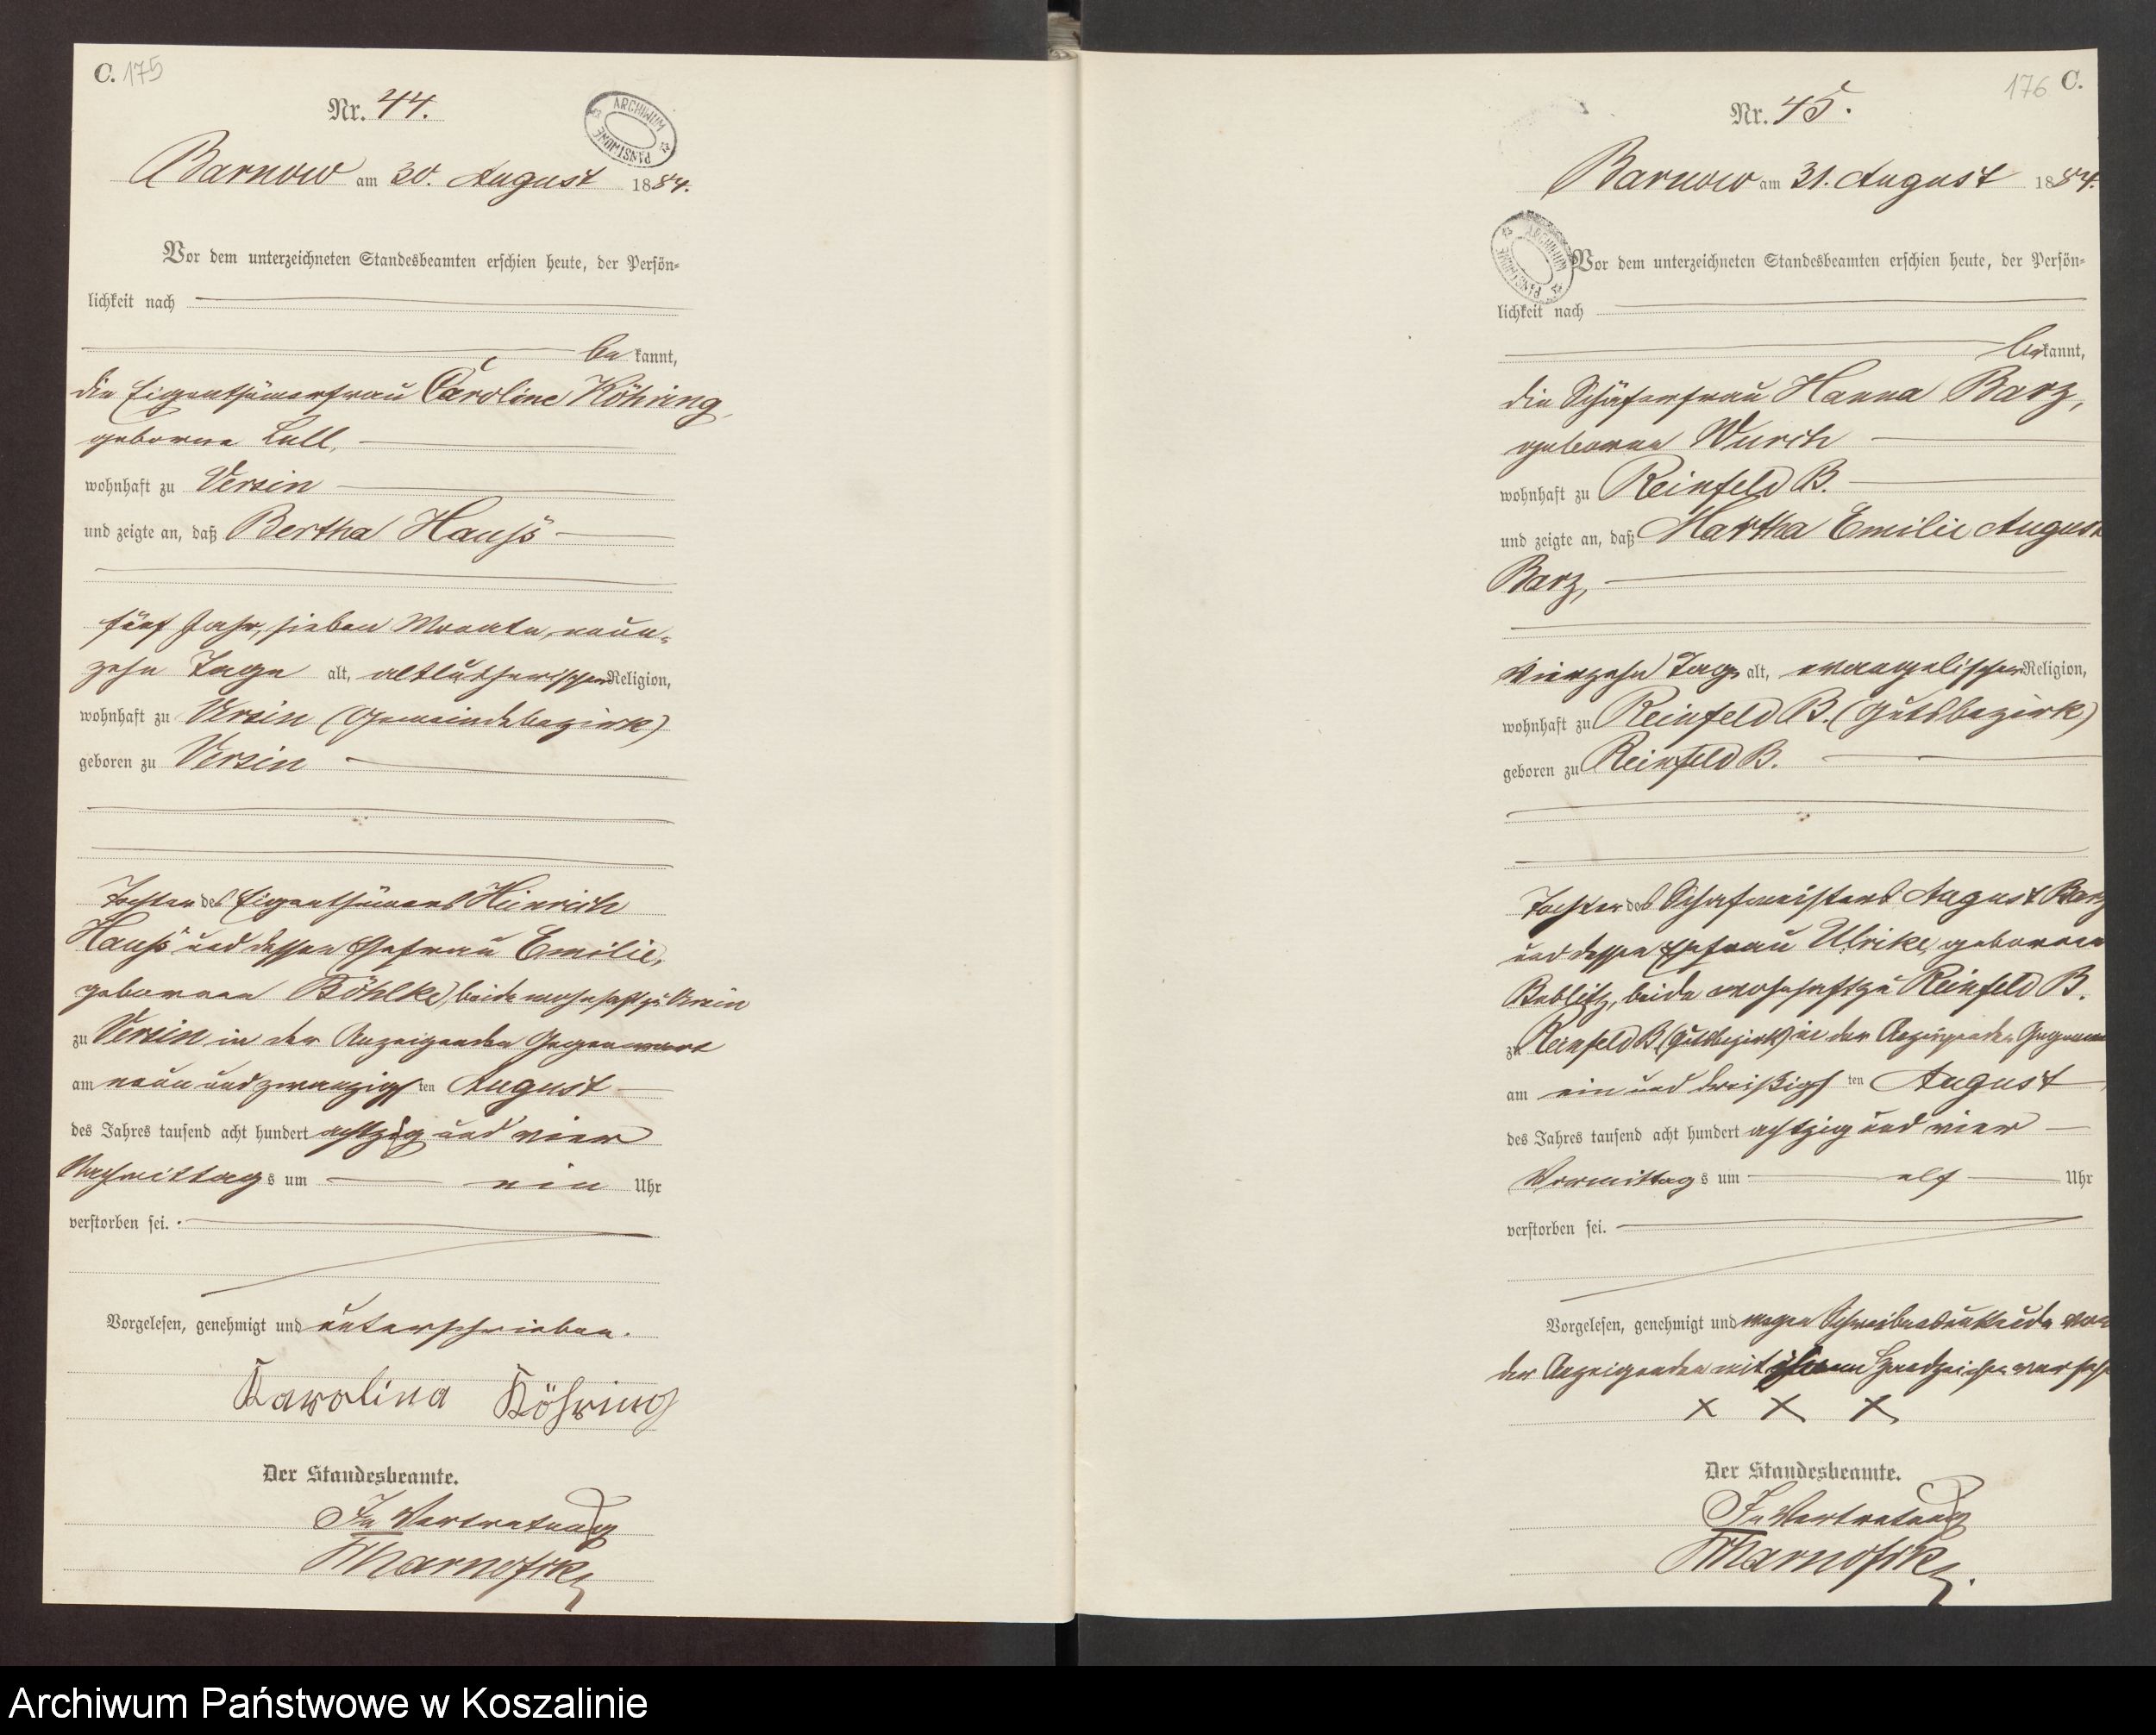 C. 175
Nr. 44.
ARCHIWUM PAŃSTWOWE
Barnow am 30. August 1884.
Vor dem unterzeichneten Standesbeamten erschien heute, der Persön-
lichkeit nach
be kannt,
die Eigenthümerfrau Caroline Köhring,
geborne Lull,
wohnhaft zu Versin
und zeigte an, daß Bertha Hauß
fünf Jahr, sieben Monate, neun-
zehn Tage alt, altlutherischer Religion,
wohnhaft zu Versin (Gemeindebezirk)
geboren zu Versin
Tochter des Eigenthümers Hinrich
Hauß und dessen Ehefrau Emilie,
geborenen Böhlke, beide wohnhaft zu Versin
zu Versin in der Anzeigenden Gegenwart
am neun und zwanzigsten August
des Jahres tausend acht hundert achtzig und vier
Nachmittags um ein Uhr
verstorben sei.
Vorgelesen, genehmigt und unterschrieben.
Karolina Köhring
Der Standesbeamte.
In Vertretung
176 C.
Nr. 45.
Barnow am 31. August 1884.
ARCHIWUM PAŃSTWOWE
Vor dem unterzeichneten Standesbeamten erschien heute, der Persön-
lichkeit nach
be kannt,
die Schäferfrau Hanna Barz,
geborne Wurch
wohnhaft zu Reinfeld B.
und zeigte an, daß Martha Emilie August
Barz,
vierzehn Tage alt, evangelischer Religion,
wohnhaft zu Reinfeld B. (Gutsbezirk)
geboren zu Reinfeld B.
Tochter des Schafmeisters August Barz
und dessen Ehefrau Ulrike, geborenen
beide wohnhaft zu Reinfeld B.
zu Reinfeld B (Gutsbezirk) in der Anzeigenden Gegenwa
am ein und dreißigsten August
des Jahres tausend acht hundert achtzig und vier
Vormittags um elf Uhr
verstorben sei.
Vorgelesen, genehmigt und wegen Schreibensunkunde von
der Anzeigenden mit ihrem Handzeichen verseh
x x x
Der Standesbeamte.
In Vertretung
Archiwum Państwowe w Koszalinie